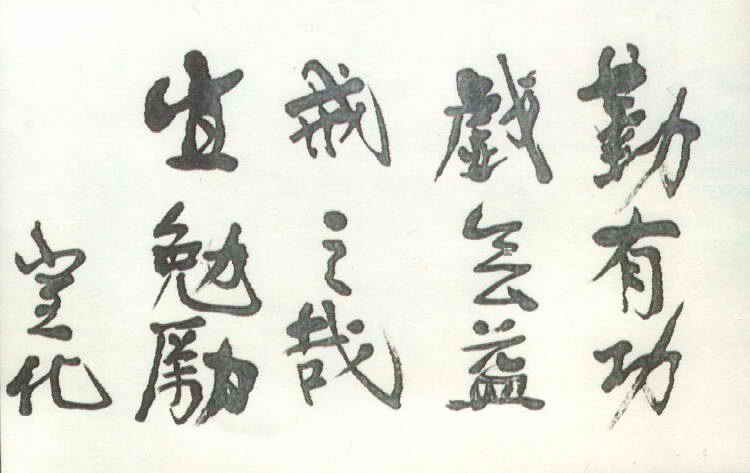 勤有功
戲無益
戒之哉
宜勉勵
宣化